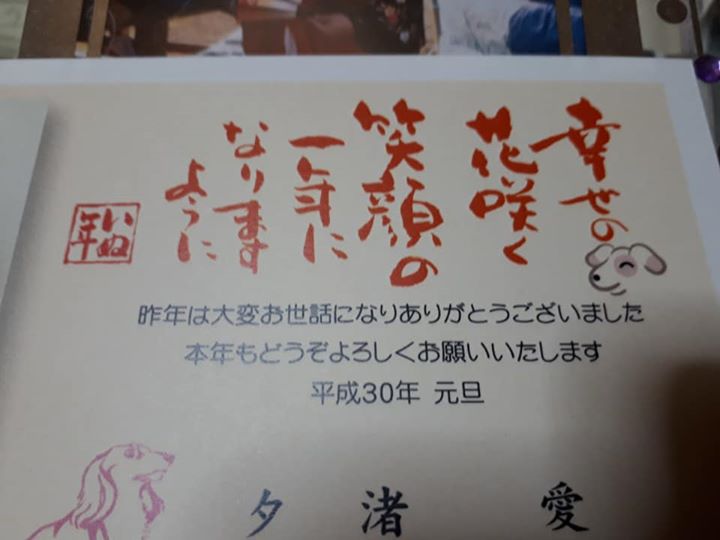 幸せの
花咲く
笑顔の
一年に
なります
ように
いぬ
年
昨年は大変お世話になりありがとうございました
本年もどうぞよろしくお願いいたします
平成30年 元旦
夕 渚 愛